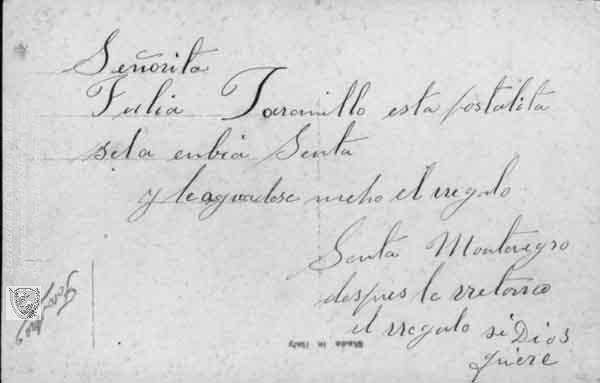 Señorita
Julia Jaramillo esta postalita
sela enbia Senta
y leagradese mcho el rregalo
Senta Montenegro
despues le rretorno
el rregalo si Dios
quiere
Made in Italy